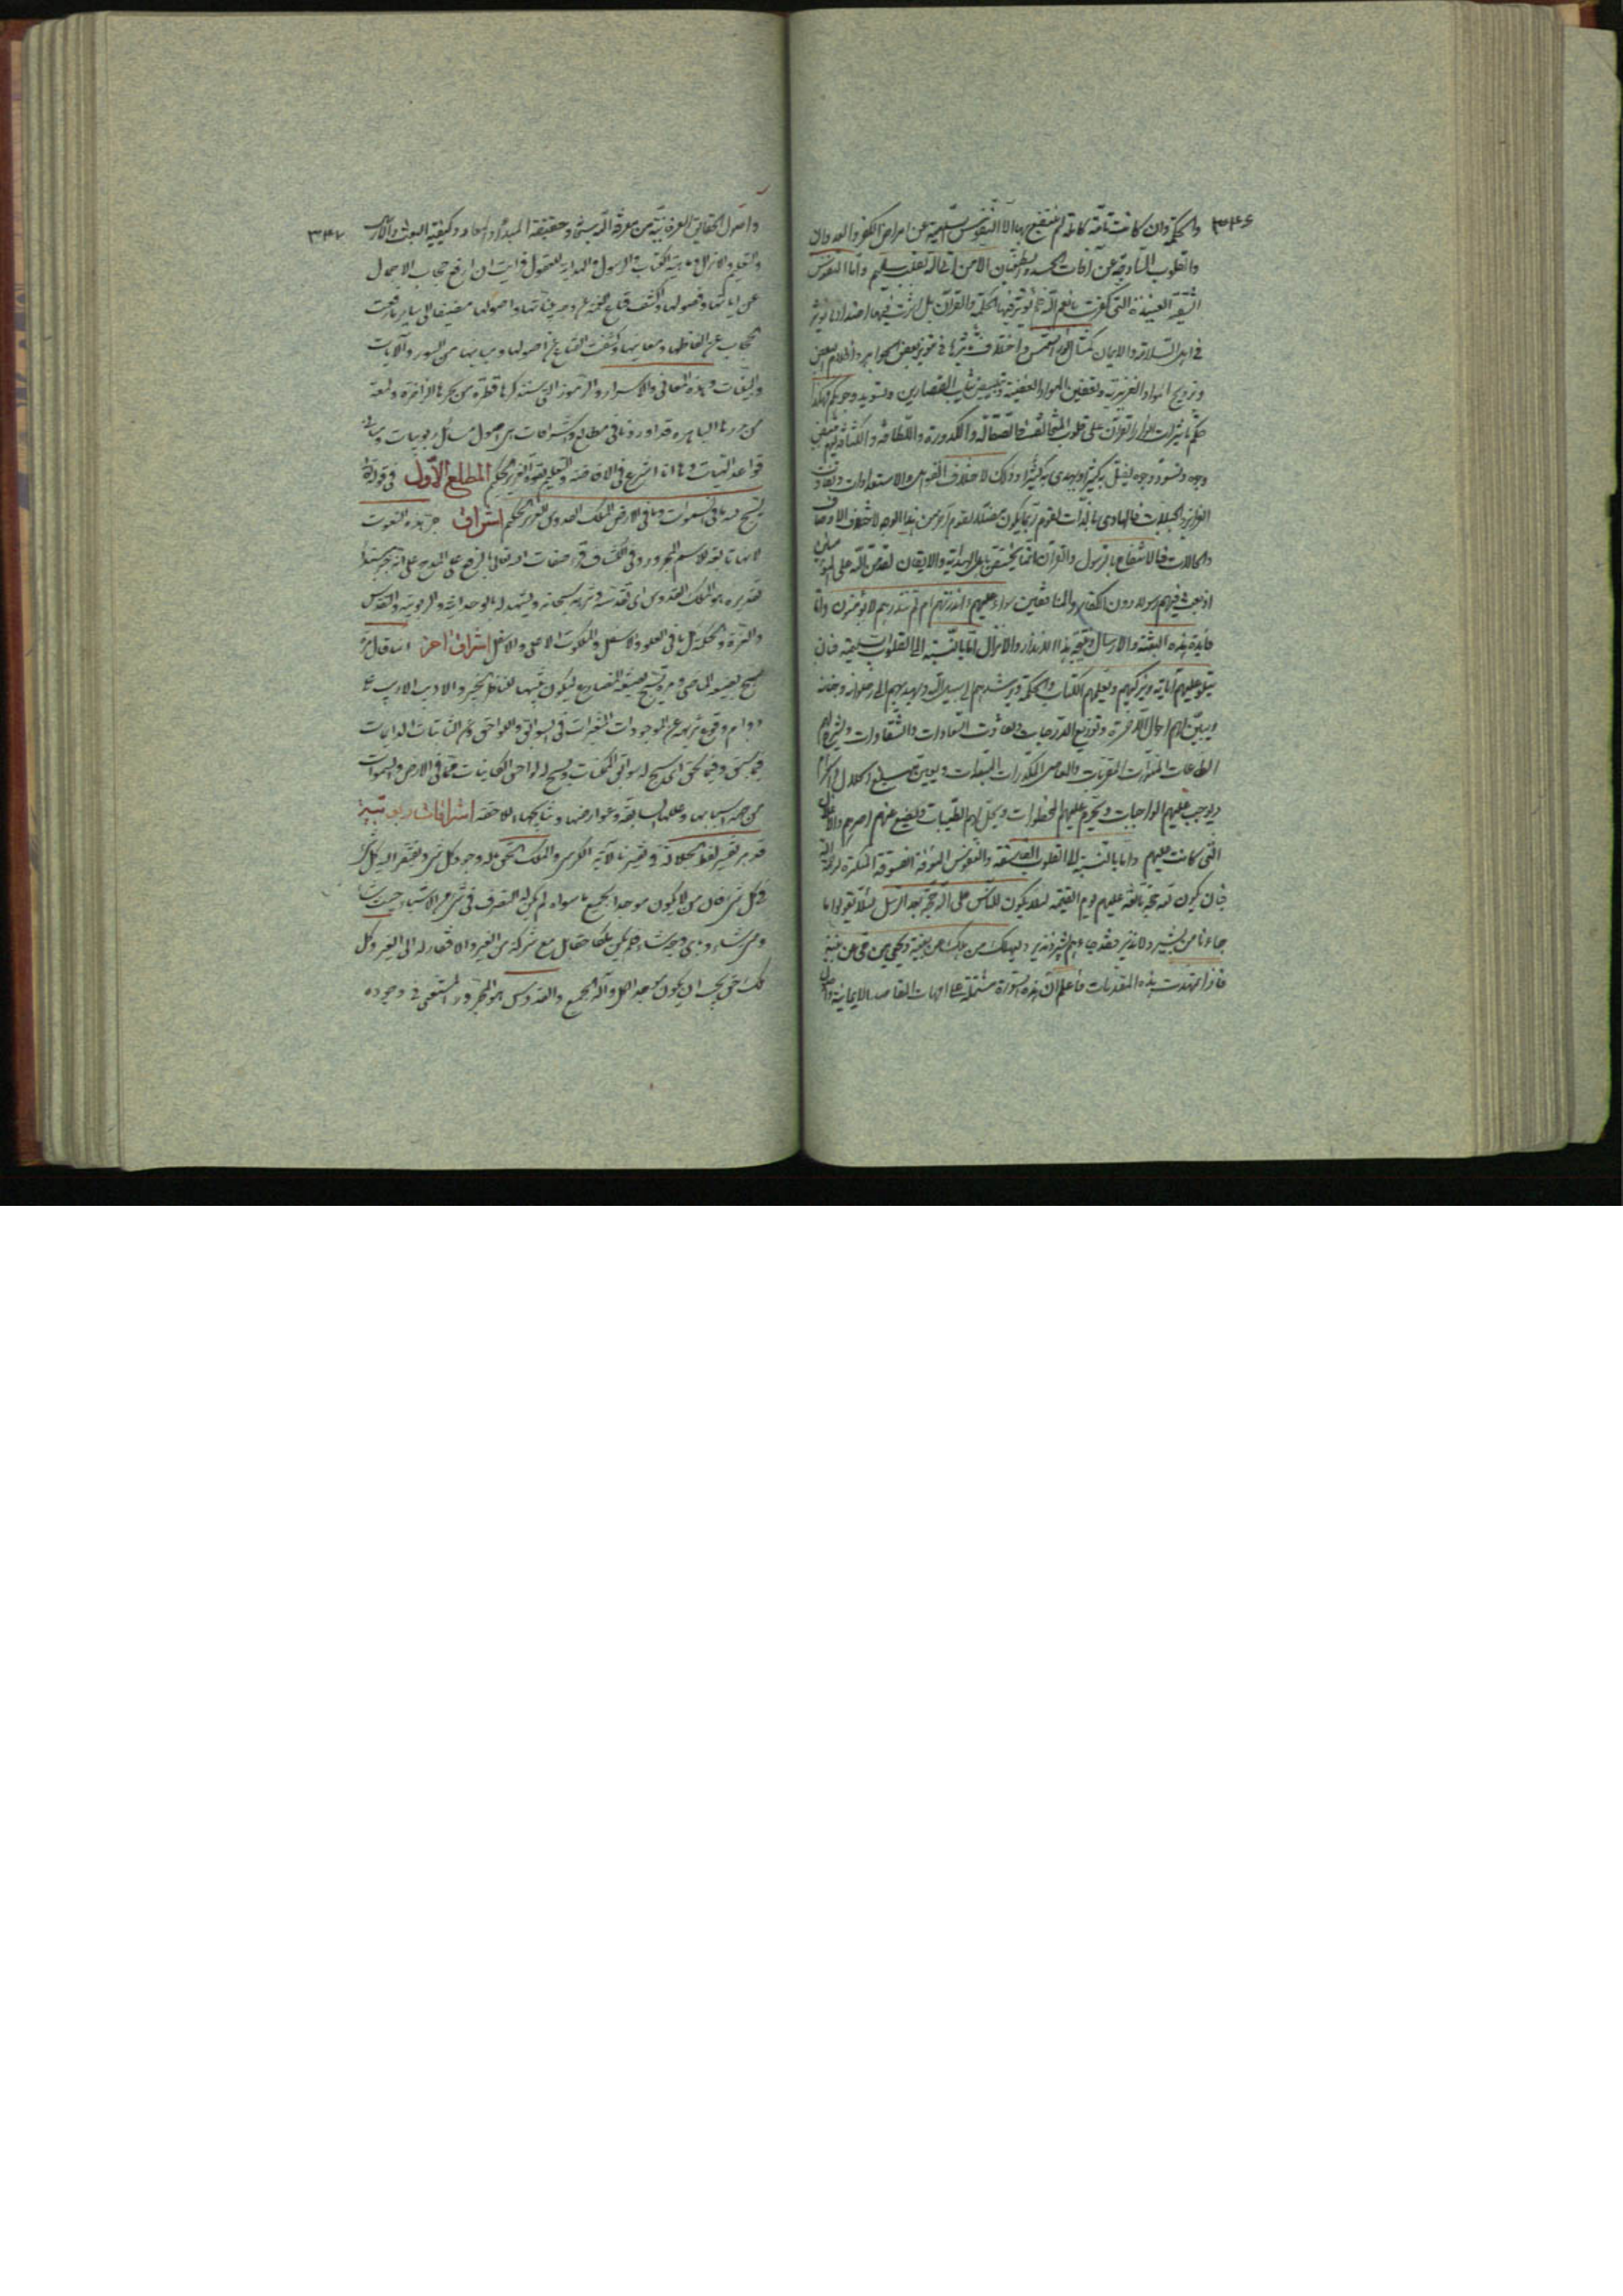 ٣٤٦
والحكمة وان كانت تامّة كاملة لم ينتفع بها الا النفوس السليمة عن امراض الكفر والعدوان
والقلوب الساذجة عن آفات الحسد والطغيان الا من اتى الله بقلب سليم واما النفوس
الشقية العنيدة التي كفرت بانعم الله فلم تؤثر فيها الحكمة والقرآن بل اثرت فيها اضداد ما تؤثر
في اهل السلامة والايمان كمثال نور الشمس واختلاف تأثيرها في تنوير بعض الجواهر واظلام البعض
وترويح المواد الغريزية وتعفين المواد العفنة وتبييض ثياب القصارين وتسويد وجوههم فهكذا
حكم تأثيرات انوار القرآن على قلوب المختلفة في الصقالة والكدورة واللطافة والكثافة فيبيض
وجوه وتسود وجوه ليضل به كثيرا ويهدي به كثيرا وذلك لاختلاف القوابل والاستعدادات وتفاوت
الغرايز والجبلات فالهادي بالذات لقوم ربما يكون مضلا لقوم آخرين من هذا الوجه لاختلاف الاوصاف
والحالات فالانتفاع بالرسول والقرآن انما يختص باهل الهداية والايقان لقد من الله على المؤمنين
اذ بعث فيهم رسولا دون الكفار والمنافقين سواء عليهم ءانذرتهم ام لم تنذرهم لا يؤمنون واما
فايدة هذه البعثة والارسال ونتيجة هذا الانذار والانزال اما بالنسبة الى القلوب السليمة فبان
يتلو عليهم آياته ويزكيهم ويعلمهم الكتاب والحكمة ويرشدهم الى سبيل الله ويهديهم الى رضوانه وجنانه
ويبين لهم احوال الآخرة وتوزيع الدرجات وتفاوت السعادات والشقاوات ويشرح لهم
الطاعات المنورات المقربات والمعاصي المكدرات المبعدات
ويوجب عليهم الواجبات ويحرم عليهم المحظورات ويحل لهم الطيبات ويضع عنهم اصرهم والاغلال
التي كانت عليهم واما بالنسبة الى القلوب الفاسقة والنفوس المؤفة
فبان يكون لله حجة بالغة عليهم يوم القيمة لئلا يكون للناس على الله حجة بعد الرسل لئلا يقولوا ما
جاءنا من بشير ولا نذير فقد جاءهم بشير ونذير وليهلك من هلك عن بينة ويحيى من حي عن بينة
فاذا تمهدت هذه المقدمات فاعلم ان هذه السورة مشتملة على امهات المقاصد الايمانية واصول
٣٤٧
واصول الحقايق العرفانية من معرفة الله سبحانه وحقيقة المبدأ والمعاد وكيفية البعث والارسال
والتعليم والانزال وماهية الكتاب والرسول والهداية للعقول فرايت ان ارفع حجاب الاجمال
عن اياتها وفصولها واكشف قناع
الحجاب عن الفاظها ومعانيها وكشفت القناع عن اصولها ومبانيها من السور والآيات
والبينات وهذه المعاني والاسرار والرموز التي سنذكرها قطرة من بحرها الزاخرة ولمعة
من دررها الباهرة قد اوردناها في مطالع واشراقات هي اصول مسائل ربوبيات ومباني
قواعد الهيات وها انا اشرع في الافاضة والتعليم بقوة العزيز الحكيم المطلع الأول في قوله تعالى
يسبح لله ما في السموات وما في الارض الملك القدوس العزيز الحكيم اشراق جر هذه النعوت
لانها تابعة للاسم المجرور وفي الكشاف قرء صفات الله تعالى بالرفع على المدح على انه خبر مبتدأ
تقديره هو الملك القدوس اي يقدسه وينزهه سبحانه ويشهد له بالوحدانية والربوبية والقدس
والعزة والحكمة كل ما في العلو والاسفل والملكوت الاعلى والاسفل اشراق اخر انه قال مرة
سبح بصيغة الماضي ومرة يسبح بصيغة المضارع ليكون تنبيها للغافل الخبير والاديب الاريب على
دوام وقوع تنزيهه عن الموجودات المتغيرات في السوابق واللواحق وعن الثابتات الدايمات
فيما سبق وفيما لحق اي سبح له سوابق الممكنات ويسبح له لواحق الكاينات مما في الارض والسموات
من جهة اسبابها وعللها السابقة وعوارضها ونتايجها اللاحقة اشراقات ربوبية
قد مر تفسير لفظ الجلالة في تفسيرنا لآية الكرسي والملك الحق ما له وجود كل شيء ويفتقر اليه كل شيء
في كل شيء فان من لا يكون موجدا لجميع ما سواه لم يكن له التصرف في شيء من الاشياء حيث شاء
ومتى شاء وباي وجه شاء فلم يكن ملكا حقا بل مع شركة من الغير والافتقار له الى الغير وكل
ملك حق يجب ان يكون موجد الكل واله الجميع والقدوس هو المجرد المستغني في وجوده